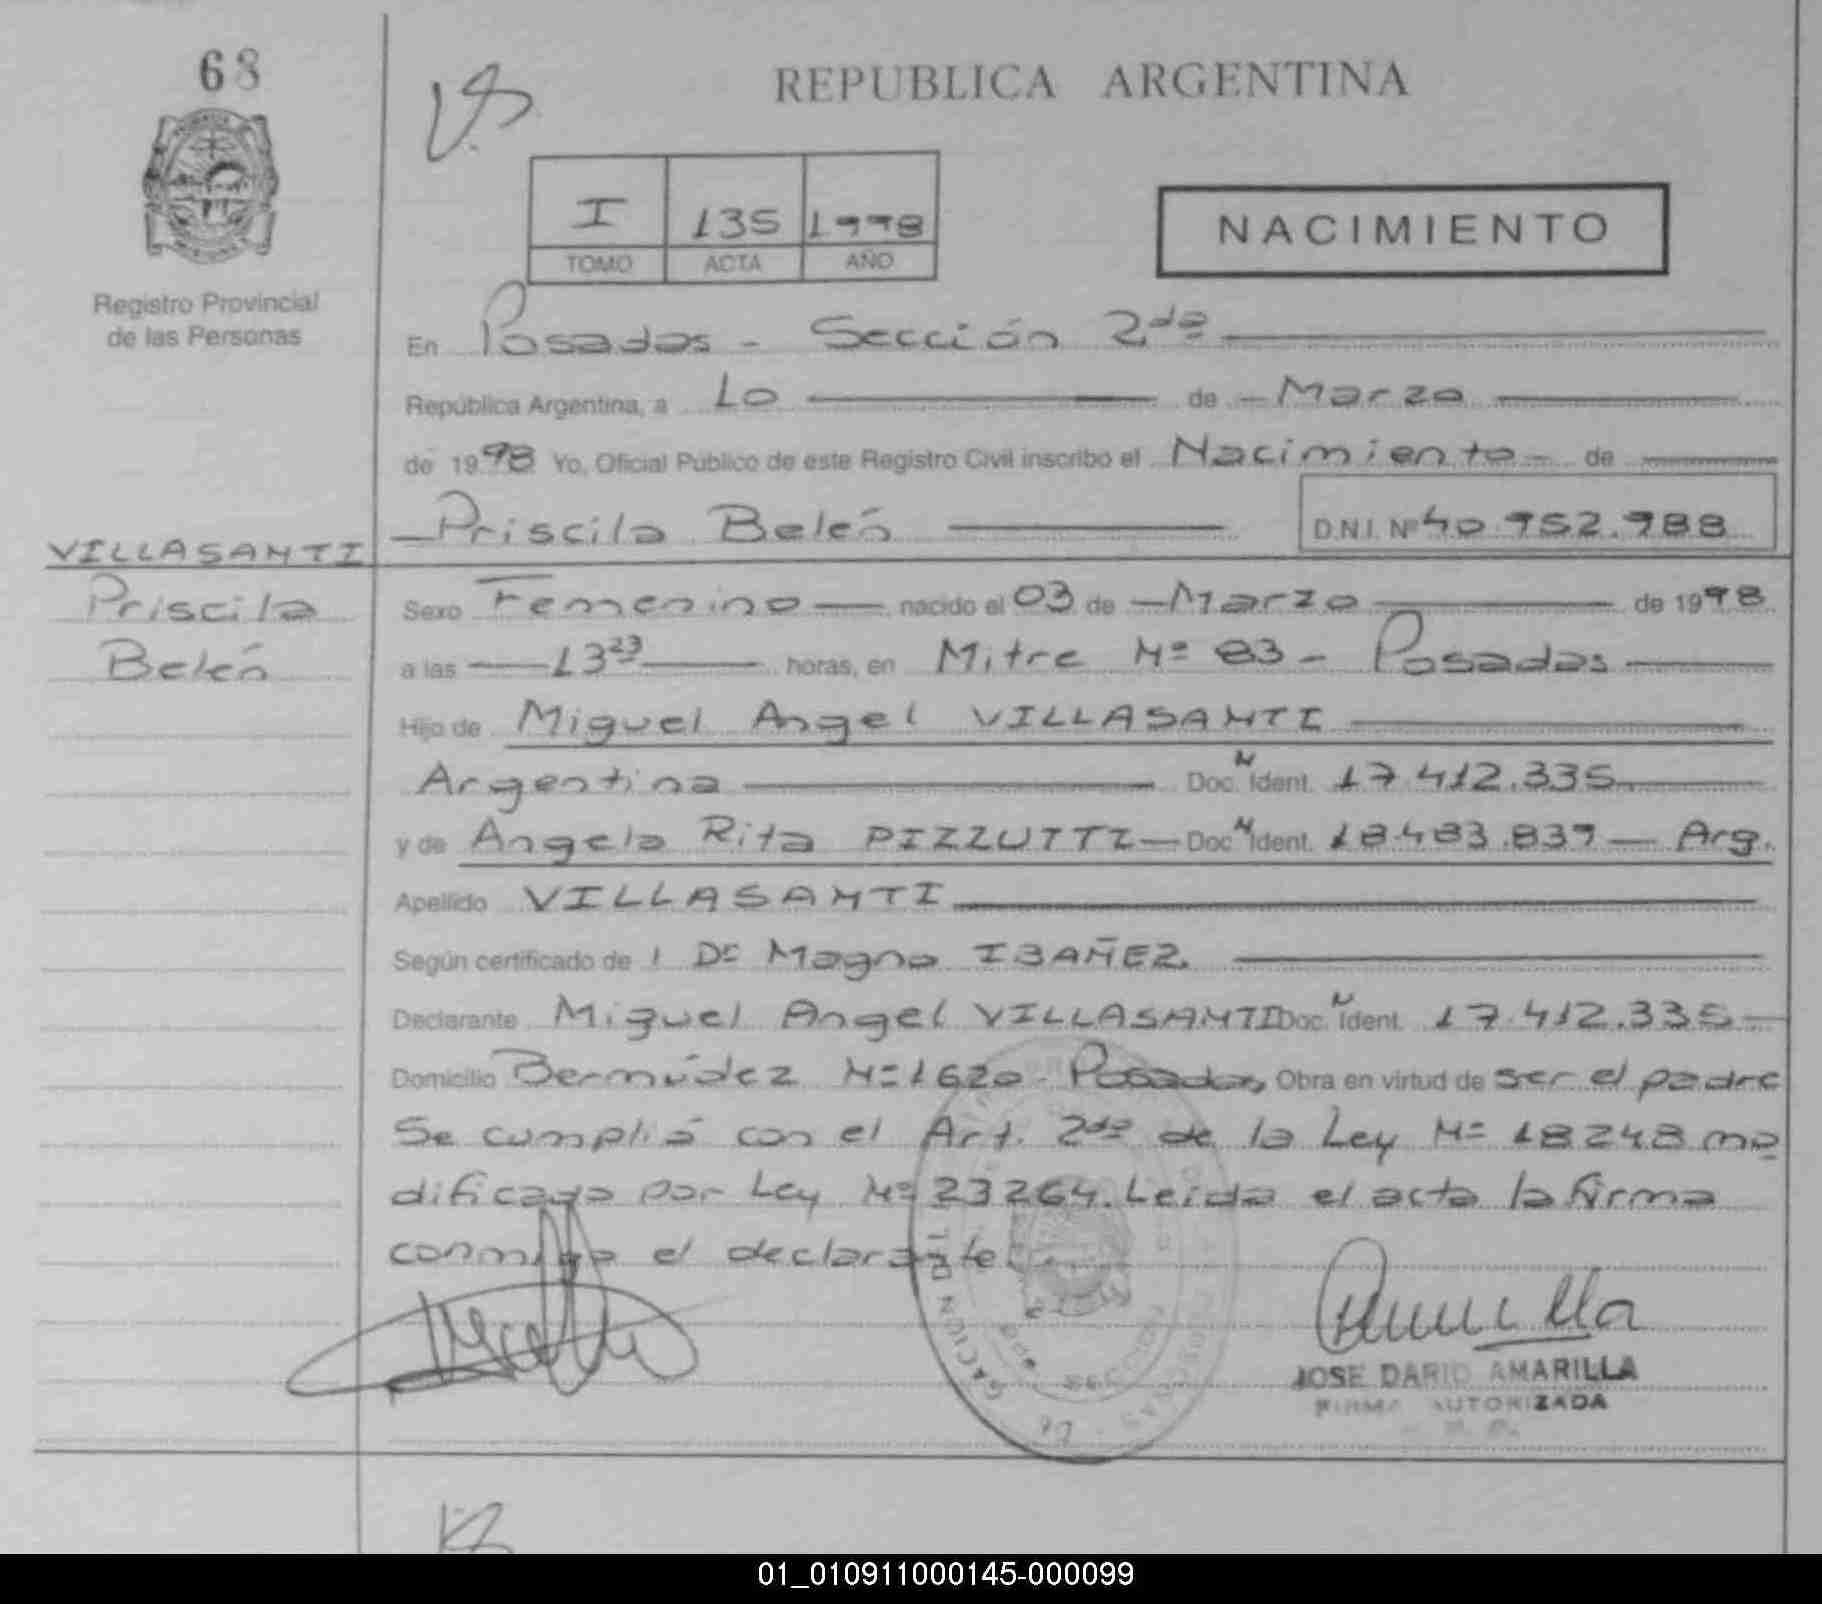 68
REPUBLICA ARGENTINA
I 135 1998
TOMO ACTA AÑO
NACIMIENTO
Registro Provincial
de las Personas
En Posadas - Sección 2da
República Argentina, a 10 de Marzo
de 1998 Yo, Oficial Público de este Registro Civil inscribo el Nacimiento - de
Priscila Belén D.N.I. Nº 40.952.988
VILLASANTI
Priscila
Belén
Sexo Femenino nacido el 03 de Marzo de 1998
a las 13 23 horas, en Mitre Nº 83 - Posadas
Hijo de Miguel Angel VILLASANTI
Argentina Doc. N Ident. 17.412.335
y de Angela Rita PIZZUTTI - Doc. N Ident. 18.483.839 - Arg.
Apellido VILLASANTI
Según certificado de Dr Magno IBAÑEZ
Declarante Miguel Angel VILLASANTI Doc. N Ident. 17.412.335
Domicilio Bermúdez Nº 1620 - Posadas, Obra en virtud de ser el padre
Se cumplió con el Art. 2do de la Ley Nº 18248 mo
dificado por Ley Nº 23264. Leída el acta la firma
conmigo el declarante.
JOSE DARIO AMARILLA
FIRMA AUTORIZADA
01_010911000145-000099